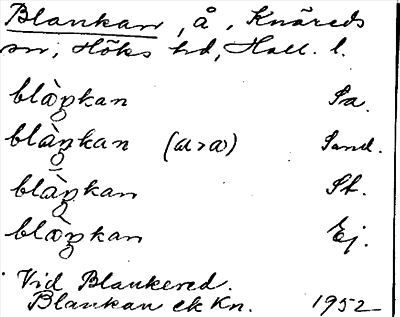 Blankan, å, Knäreds
sn, Höks hd, Hall. l.
blàŋkan Sa.
blàŋkan (a>a) Sand.
blàŋkan St.
blàŋkan Ej.
Vid Blankered.
Blankan ek Kn. 1952